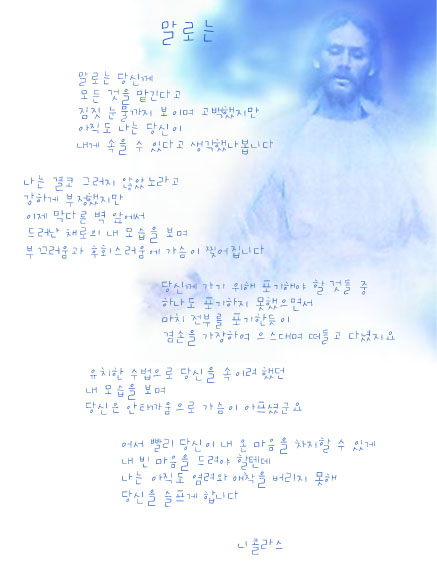 말로는
말로는 당신께
모든 것을 맡긴다고
짐짓 눈물까지 보이며 고백했지만
아직도 나는 당신이
내게 속을 수 있다고 생각했나봅니다
나는 결코 그러지 않았노라고
강하게 부정했지만
이제 막다른 벽 앞에서
드러난 채로의 내 모습을 보며
부끄러움과 후회스러움에 가슴이 찢어집니다
당신께 가기 위해 포기해야 할 것들 중
하나도 포기하지 못했으면서
마치 전부를 포기한듯이
겸손을 가장하여 으스대며 떠들고 다녔지요
유치한 수법으로 당신을 속이려 했던
내 모습을 보며
당신은 안타까움으로 가슴이 아프셨군요
어서 빨리 당신이 내 온 마음을 차지할 수 있게
내 빈 마음을 드려야 할텐데
나는 아직도 염려와 애착을 버리지 못해
당신을 슬프게 합니다
니콜라스